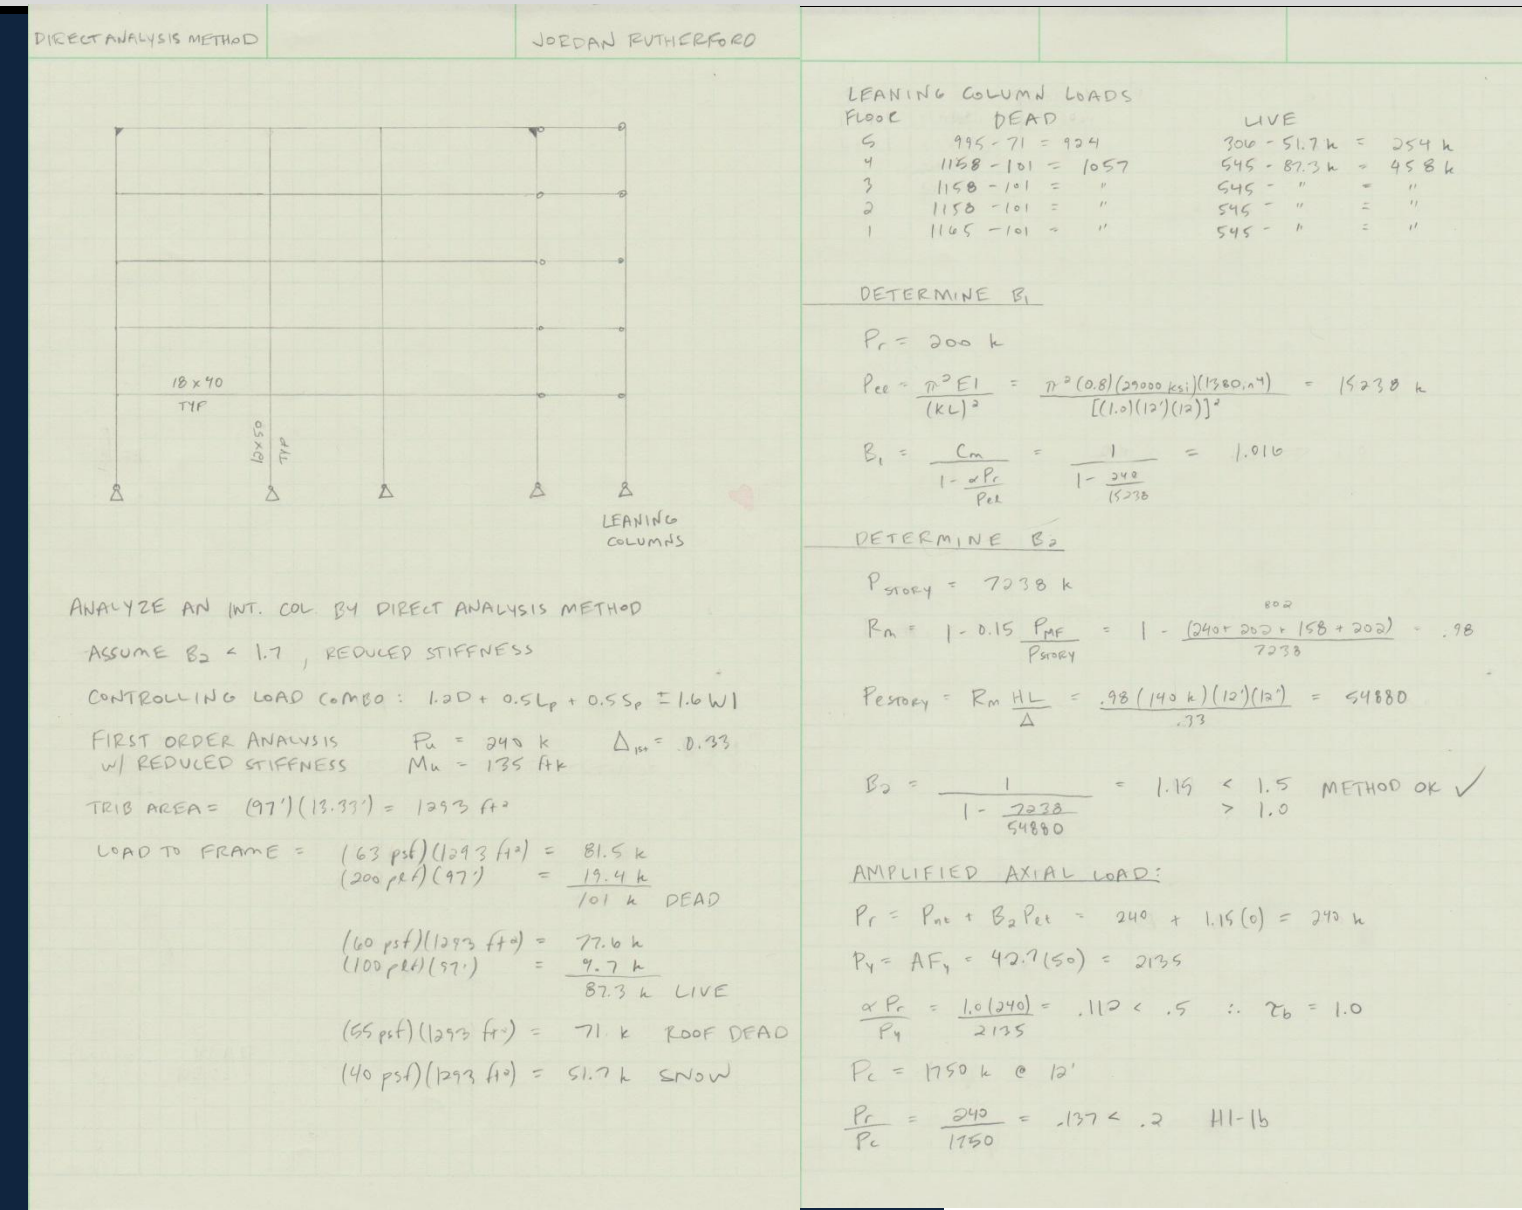 DIRECT ANALYSIS METHOD
JORDAN RUTHERFORD
18 x 40
TYP
TYP
LEANING
COLUMNS
ANALYZE AN INT. COL BY DIRECT ANALYSIS METHOD
ASSUME B2 < 1.7 , REDUCED STIFFNESS
CONTROLLING LOAD COMBO : 1.2D + 0.5Lp + 0.5Sp ± 1.6W1
FIRST ORDER ANALYSIS Pu = 240 k Δ1st = 0.33
W/ REDUCED STIFFNESS Mu = 135 ftk
TRIB AREA = (97')(13.33') = 1293 ft²
LOAD TO FRAME = (63 psf)(1293 ft²) = 81.5 k
(200 plf)(97') = 19.4 k
101 k DEAD
(60 psf)(1293 ft²) = 77.6 k
(100 plf)(97') = 9.7 k
87.3 k LIVE
(55 psf)(1293 ft²) = 71 k ROOF DEAD
(40 psf)(1293 ft²) = 51.7 k SNOW
LEANING COLUMN LOADS
FLOOR DEAD LIVE
5 995 - 71 = 924 306 - 51.7 k = 254 k
4 1158 - 101 = 1057 545 - 87.3 k = 458 k
3 1158 - 101 = " 545 - " = "
2 1158 - 101 = " 545 - " = "
1 1165 - 101 = " 545 - " = "
DETERMINE B1
Pr = 200 k
Pel = π²EI / (KL)² = π²(0.8)(29000 ksi)(1380in⁴) / [(1.0)(12')(12)]² = 15238 k
B1 = Cm / (1 - αPr/Pel) = 1 / (1 - 240/15238) = 1.016
DETERMINE B2
PSTORY = 7238 k
802
Rm = 1 - 0.15 PMF/PSTORY = 1 - (240 + 202 + 158 + 202)/7238 = .98
PeSTORY = Rm HL/Δ = .98(140 k)(12')(12')/.33 = 54880
B2 = 1 / (1 - 7238/54880) = 1.15 < 1.5 METHOD OK ✓
> 1.0
AMPLIFIED AXIAL LOAD:
Pr = Pnt + B2Pet = 240 + 1.15(0) = 240 k
Py = AFy = 42.7(50) = 2135
αPr/Py = 1.0(240)/2135 = .112 < .5 ∴ τb = 1.0
Pc = 1750 k @ 12'
Pr/Pc = 240/1750 = .137 < .2 H1-1b